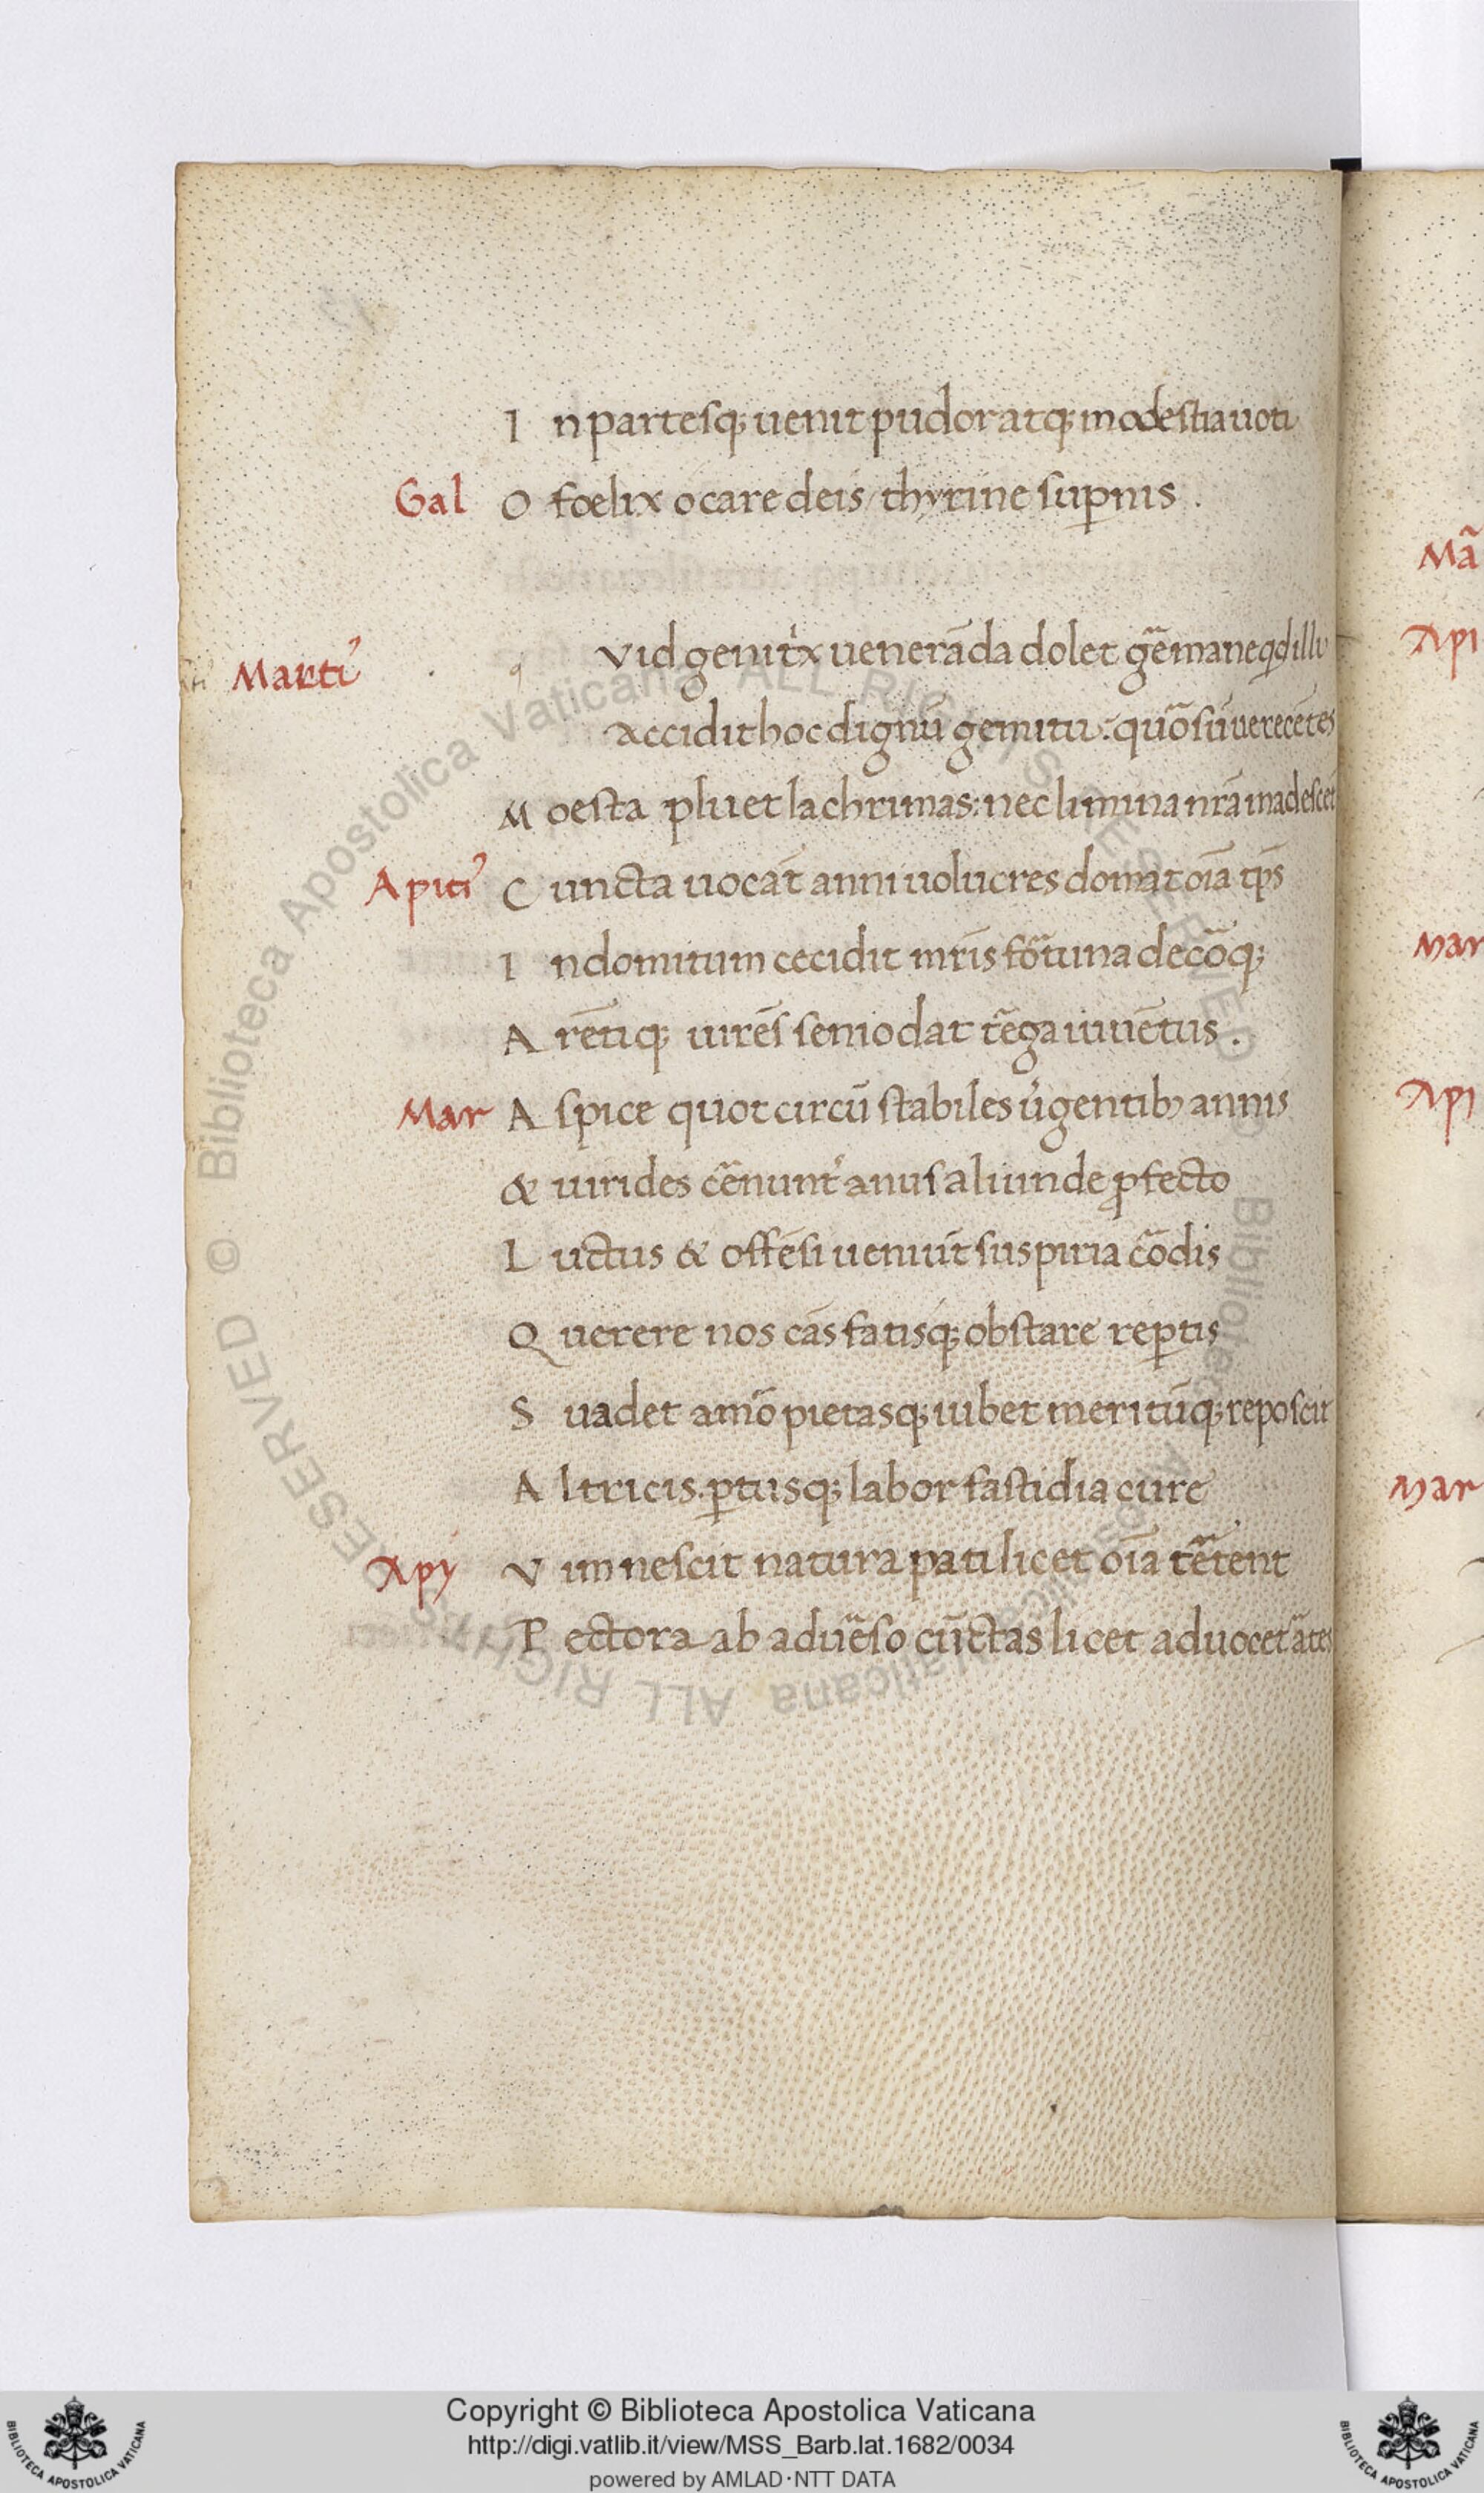 I npartesq; uenit pudor atq; modestia uoti
Gal O foelix o care deis / thyrine sup̱nis .
Marti᾽ q Vid genitͥx uenerāda dolet gẽmane qd illi
Accidit hoc dignū gemitu : quõ sū uerecētes
M oesta pluet lachrimas : nec limina nr̃a madescēt
Apiti᾽ C uncta uocāt anni uolucres domat oīa tp̄s
I ndomitum cecidit mr̄is fõtuna decõq;
A rētiq; uirēs senio dat tẽga iuuētus .
Mar A spice quot circū stabiles ũgentib; annis
& uirides cẽnunt᾽ anus aliunde ꝓfecto
L uctus & offēsi ueniūt suspiria cõdis
Q uerere nos cās fatisq; obstare rep̱tis
S uadet amõ pietasq; iubet meritūq; reposcit
A ltricis . p̱tusq; labor fastidia cure
Apy V im nescit natura pati licet oīa tẽtent
P ectora ab aduẽso cūctas licet aduocet ātes
Mā
Api
Mar
Api
Mar
© Biblioteca Apostolica Vaticana ALL RIGHTS RESERVED © Biblioteca Apostolica Vaticana ALL RIGHTS RESERVED
Copyright © Biblioteca Apostolica Vaticana
http://digi.vatlib.it/view/MSS_Barb.lat.1682/0034
powered by AMLAD·NTT DATA
BIBLIOTECA APOSTOLICA VATICANA
BIBLIOTECA APOSTOLICA VATICANA